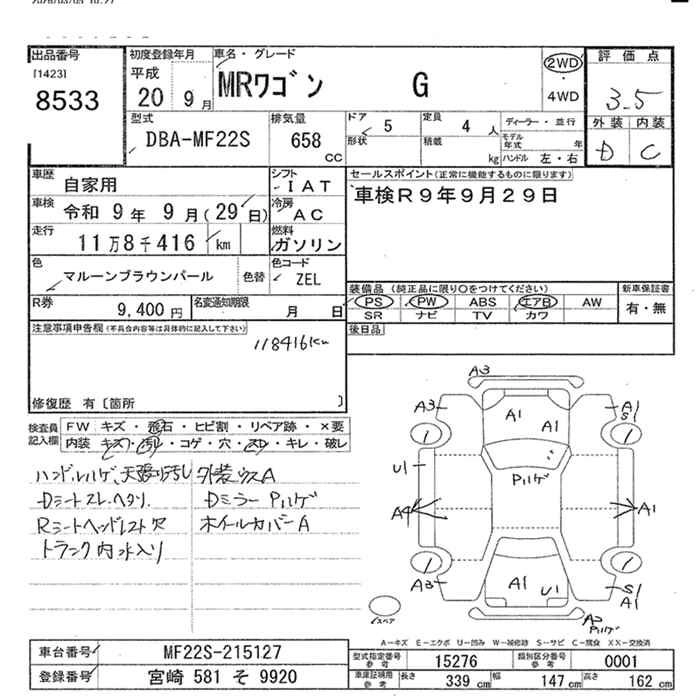 出品番号
[1423]
8533
初度登録年月
平成
20 9月
車名・グレード
MRワゴン G
2WD
・
4WD
評価点
3.5
外装 内装
D C
型式
DBA-MF22S
排気量
658
CC
ドア 5
形状
定員 4 人
積載 kg
ディーラー・並行
モデル年式 年
ハンドル 左・右
車歴 自家用
シフト IAT
セールスポイント(正常に機能するものに限ります)
車検R9年9月29日
車検 令和 9年 9月(29日)
冷房 AC
走行 11万8千416 km
燃料 ガソリン
色 マルーンブラウンパール 色替
色コード ZEL
装備品(純正品に限り○をつけてください) 新車保証書
PS PW ABS エアB AW 有・無
SR ナビ TV カワ
R券 9,400円
名変通知期限 月 日
後日品
注意事項申告欄(不具合内容等は具体的に記入して下さい)
118416km
修復歴 有〔箇所 〕
検査員記入欄
FW キズ・飛石・ヒビ割・リペア跡・×要
内装 キズ・汚れ・コゲ・穴・スレ・キレ・破レ
ハンドルハゲ、天張り汚し 外装ウスA
Dシートスレ、ヘタリ、 DミラーPハゲ
Rシートヘッドレスト欠 ホイールカバーA
トランク内水入り
A3
A3 A1 A1 A1
S
U1 Pハゲ
A4 A1
A3 A1 U1 S1
A1
スペア
A2
Pハゲ
A-キズ E-エクボ U-凹み W-補修跡 S-サビ C-腐食 XX-交換済
車台番号 MF22S-215127
型式指定番号 参考 15276
類別区分番号 参考 0001
登録番号 宮崎 581 そ 9920
車庫証明用 参考
長さ 339 cm
幅 147 cm
高さ 162 cm